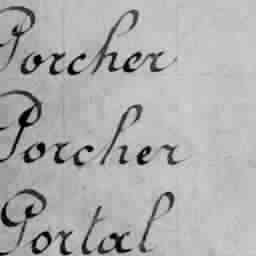 Porcher
Porcher
Portal